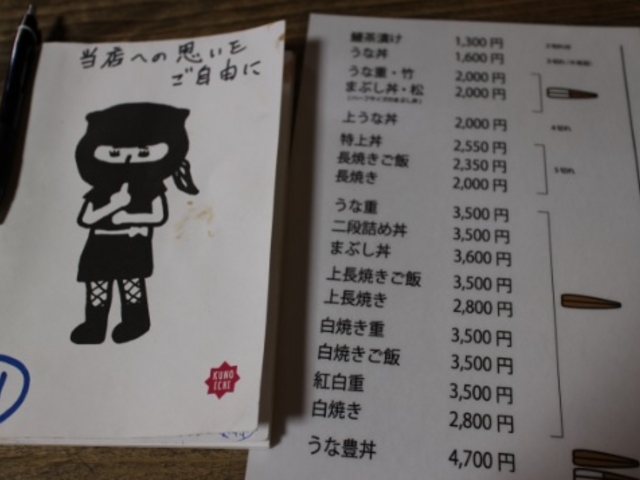 当店への思いを
ご自由に
KUNO
ICHI
鰻茶漬け 1,300 円
うな丼 1,600 円
うな重・竹 2,000 円
まぶし丼・松 2,000 円
上うな丼 2,000 円
特上丼 2,550 円
長焼きご飯 2,350 円
長焼き 2,000 円
うな重 3,500 円
二段詰め丼 3,500 円
まぶし丼 3,600 円
上長焼きご飯 3,500 円
上長焼き 2,800 円
白焼き重 3,500 円
白焼きご飯 3,500 円
紅白重 3,500 円
白焼き 2,800 円
うな豊丼 4,700 円